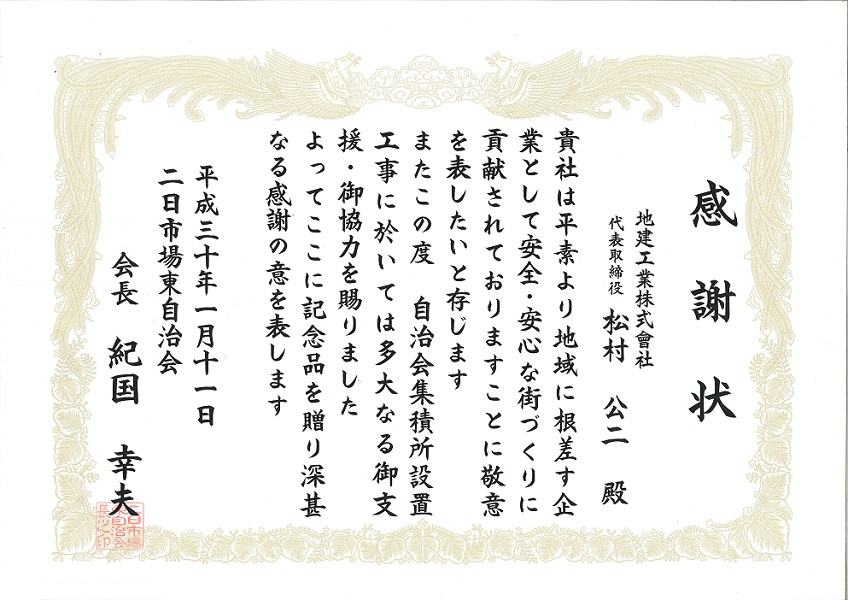 感謝状
地建工業株式會社
代表取締役 松村 公二 殿
貴社は平素より地域に根差す企
業として安全・安心な街づくりに
貢献されておりますことに敬意
を表したいと存じます
またこの度 自治会集積所設置
工事に於いては多大なる御支
援・御協力を賜りました
よってここに記念品を贈り深甚
なる感謝の意を表します
平成三十年一月十一日
二日市場東自治会
会長 紀国 幸夫
二日市場
東自治会
長之印